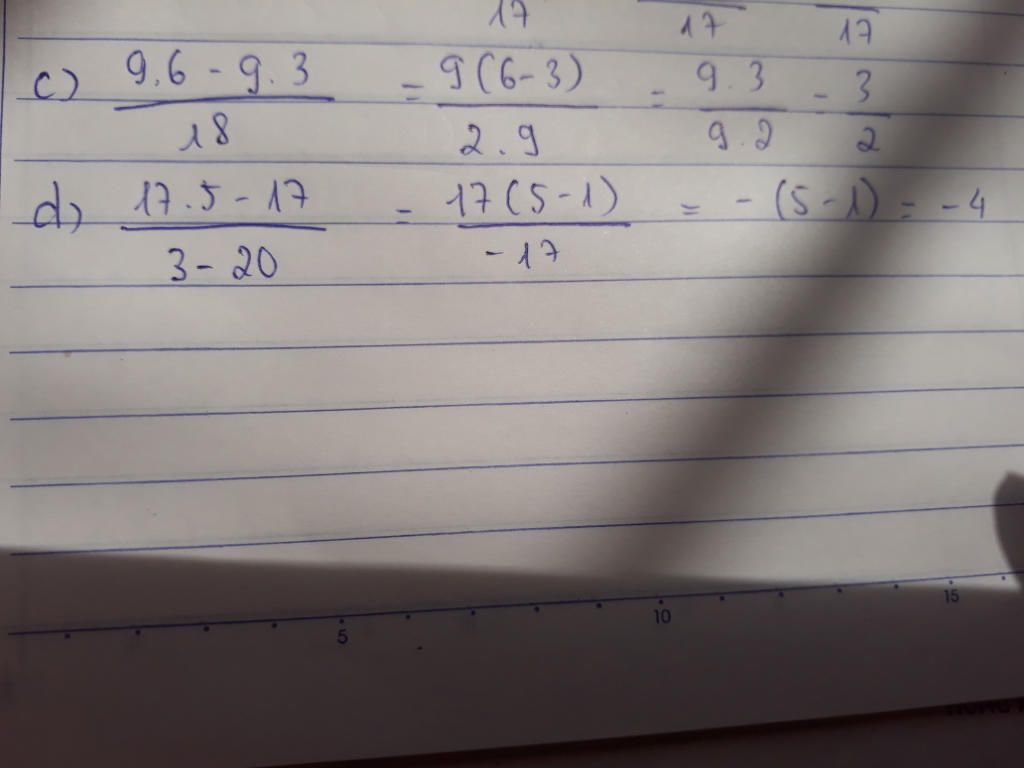 17 17 17
c) 9.6 - 9.3 / 18 = 9(6-3) / 2.9 = 9.3 / 9.2 - 3 / 2
d) 17.5 - 17 / 3 - 20 = 17(5-1) / -17 = - (5-1) = -4
5 10 15